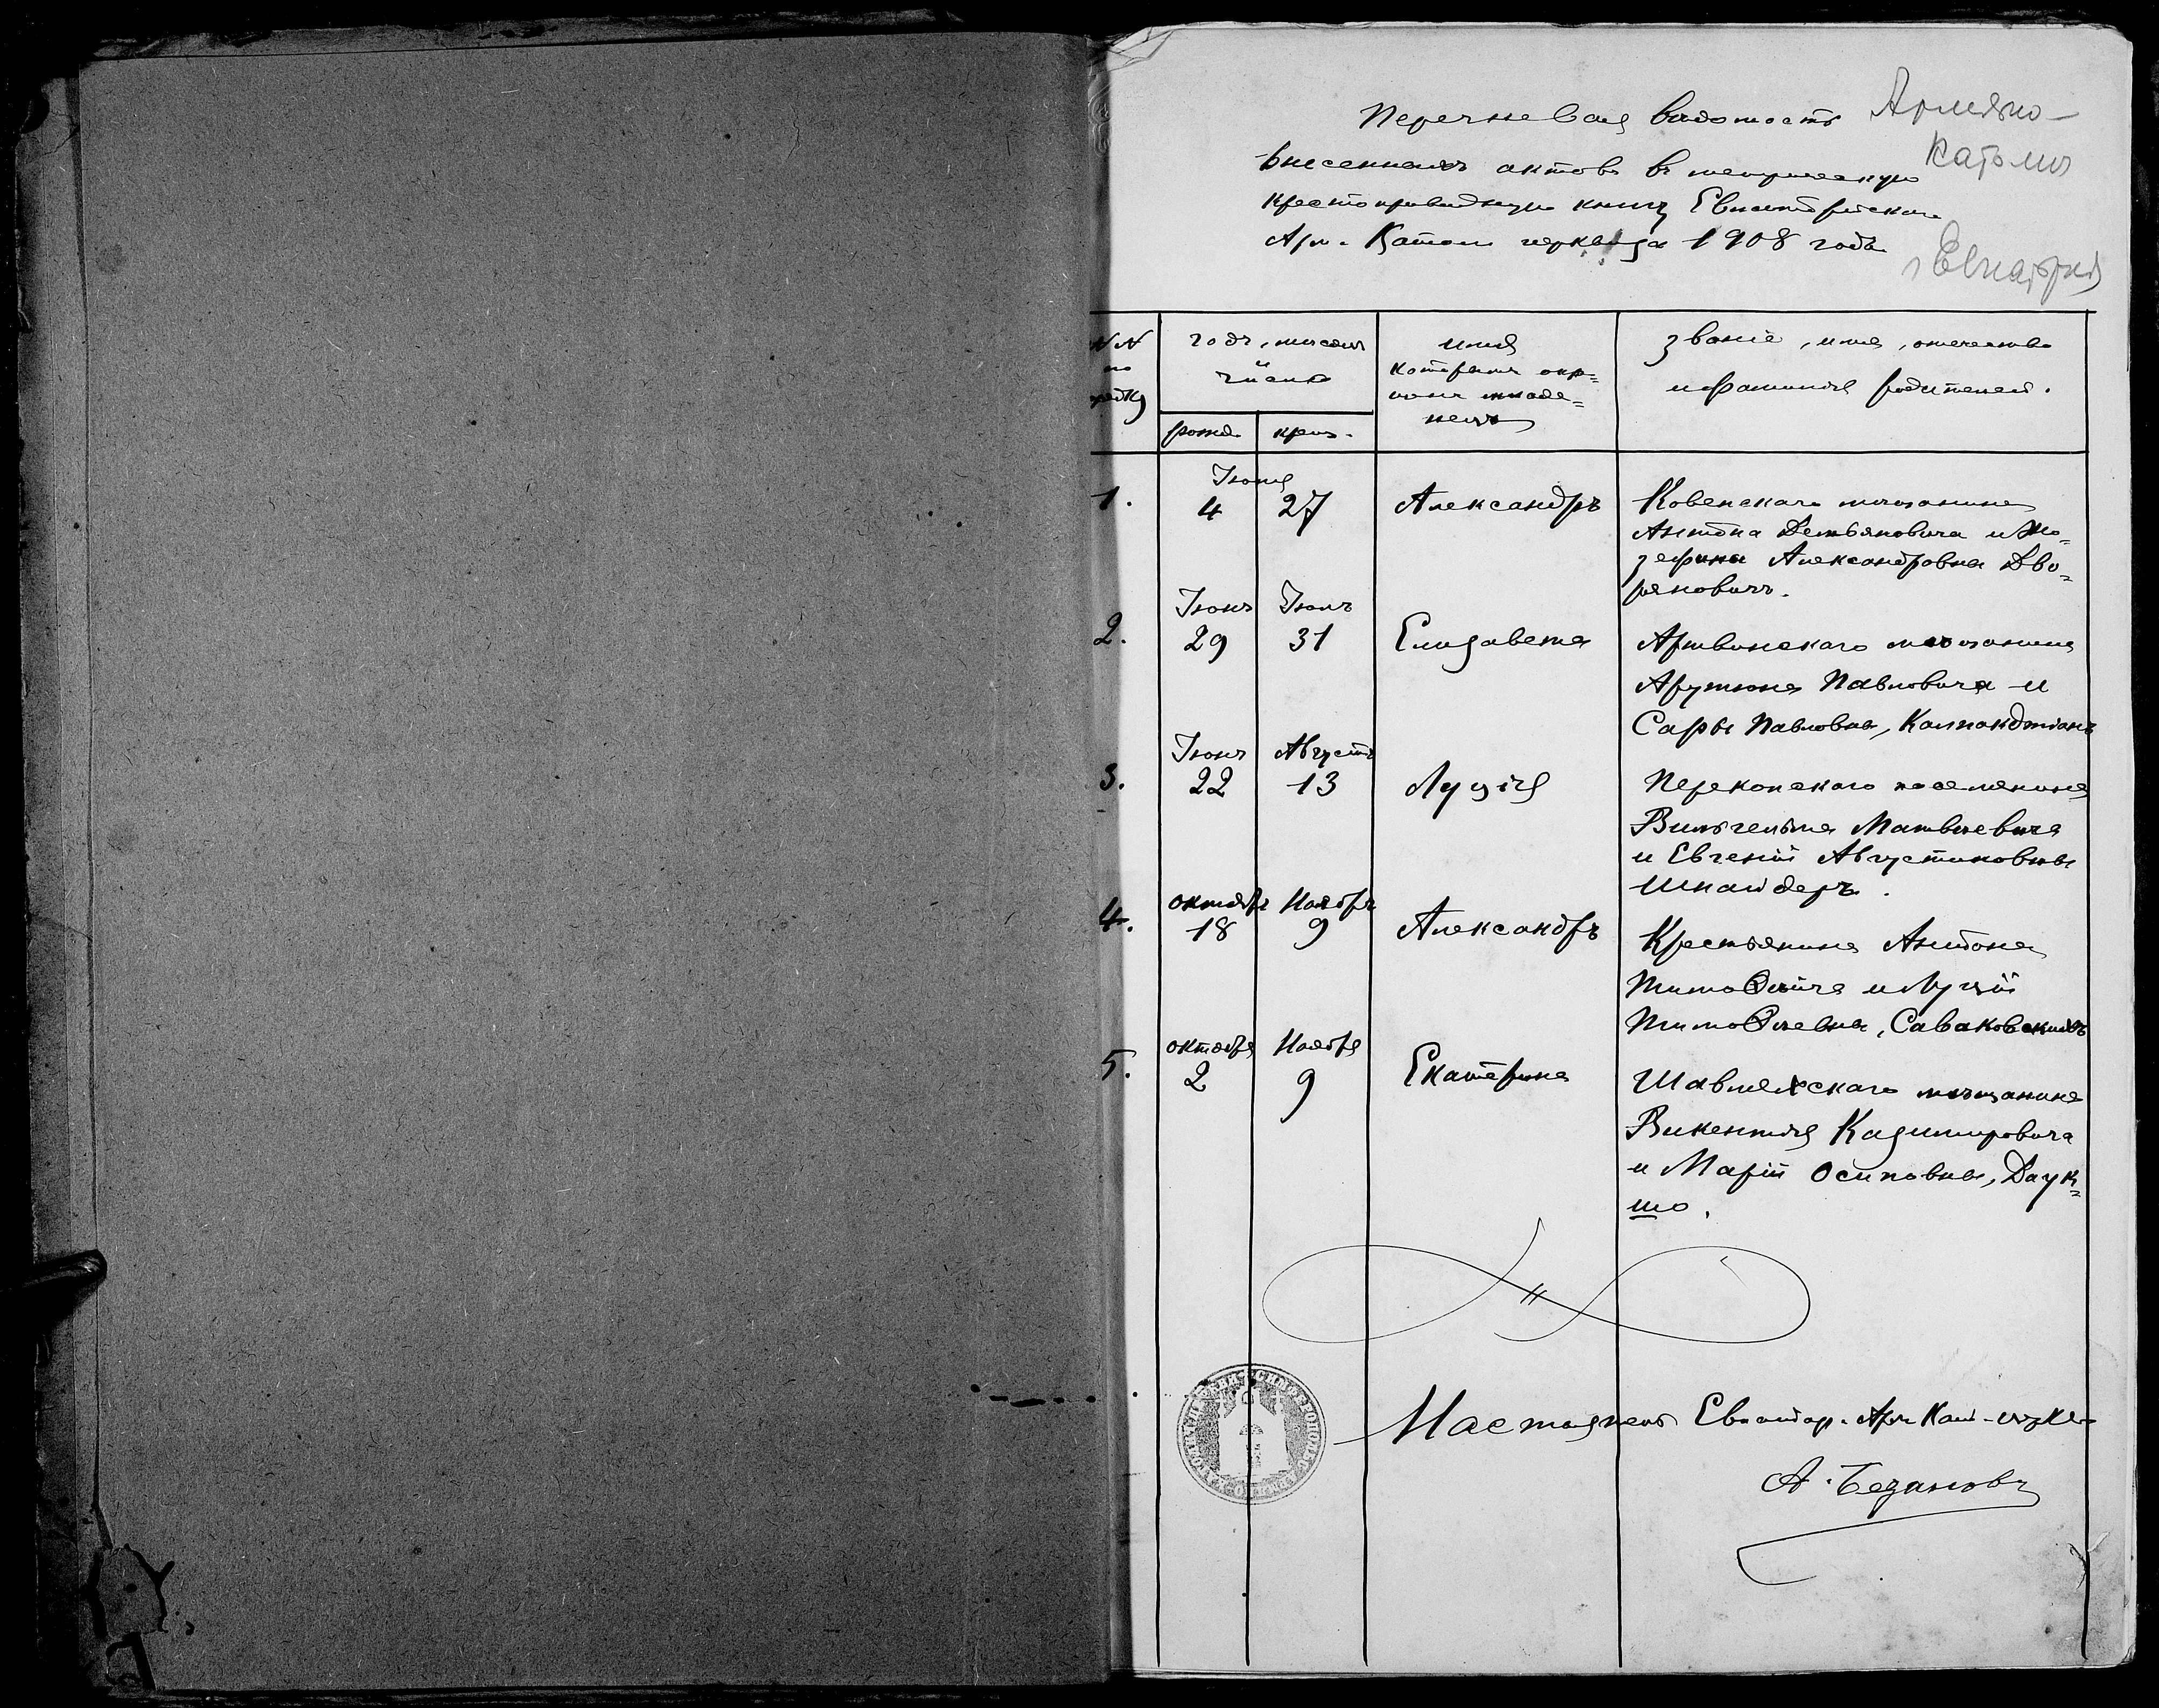 Перечневая ведомость
Армяно-
Катол
внесенныхъ актовъ въ метрическую
крестопривидную книгу Евпаторійской
Арм. Катол церкви за 1908 годъ
г Евпаторія
NN
по
рядку
годъ, мѣсяцъ
и
число
рожд.
крещ.
имя
которымъ окр=
младе=
нецъ
званіе, имя, отчество
и фамилія родителей.
1.
Іюня
4
27
Александръ
Ковенскаго мѣщанина
Антона Демьяновича и Жо=
зефины Александровны Дво=
ряновичъ.
2.
Іюнь
29
Іюль
31
Елизавета
Артвинскаго мѣщанина
Арутюна Павловича и
Сары Павловны, Калпакджіанъ
3.
Іюнь
22
Августъ
13
Луція
Перекопскаго поселянина
Вильгельма Матвѣевича
и Евгеніи Августиновны
Шнайдеръ.
4.
октябрь
18
Ноябрь
9
Александръ
Крестьянина Антона
Тимоѳеича и Луціи
Тимоѳеевны, Саваковскихъ
5.
октября
2
Ноября
9
Екатерина
Шавлехскаго мѣщанина
Викентія Казимировича
и Маріи Осиповны, Даук=
што.
Настоятель Евпатор. Арм Кат-церкв
А. Безановъ